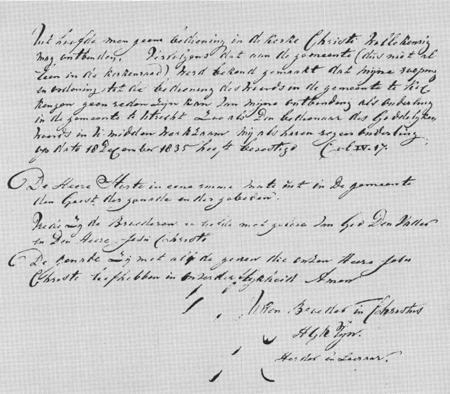 Uit hoofde men geene bediening in de kerke Christi willekeurig
mag ontbinden. Vervolgens dat aan de gemeente (dus niet al
leen in de kerkenraad) werd bekend gemaakt dat mijne roeping
en ordening tot de bediening des Woords in de gemeente te
geen reden zijn kan van mijne ontbinding als ouderling
in de gemeente te Utrecht Zoo als Den bedienaar des Goddelijken
Woords in Uw midden werkzaam mij als haren ouderling
op dato 18 December 1835 heeft bevestigd Col. IV. 17.
De Heere storte in eene ruime mate uit in De gemeente
den Geest der genade en der gebeden.
Vrede zij de Broederen en liefde met geloove van God Den Vader
en Den Heere Jesu Christo
De genade zij met alle de genen die onzen Heere Jesu
Christi liefhebben in onverderfelijkheid Amen
Uwen Broeder in Christus
Herder en Leeraar.